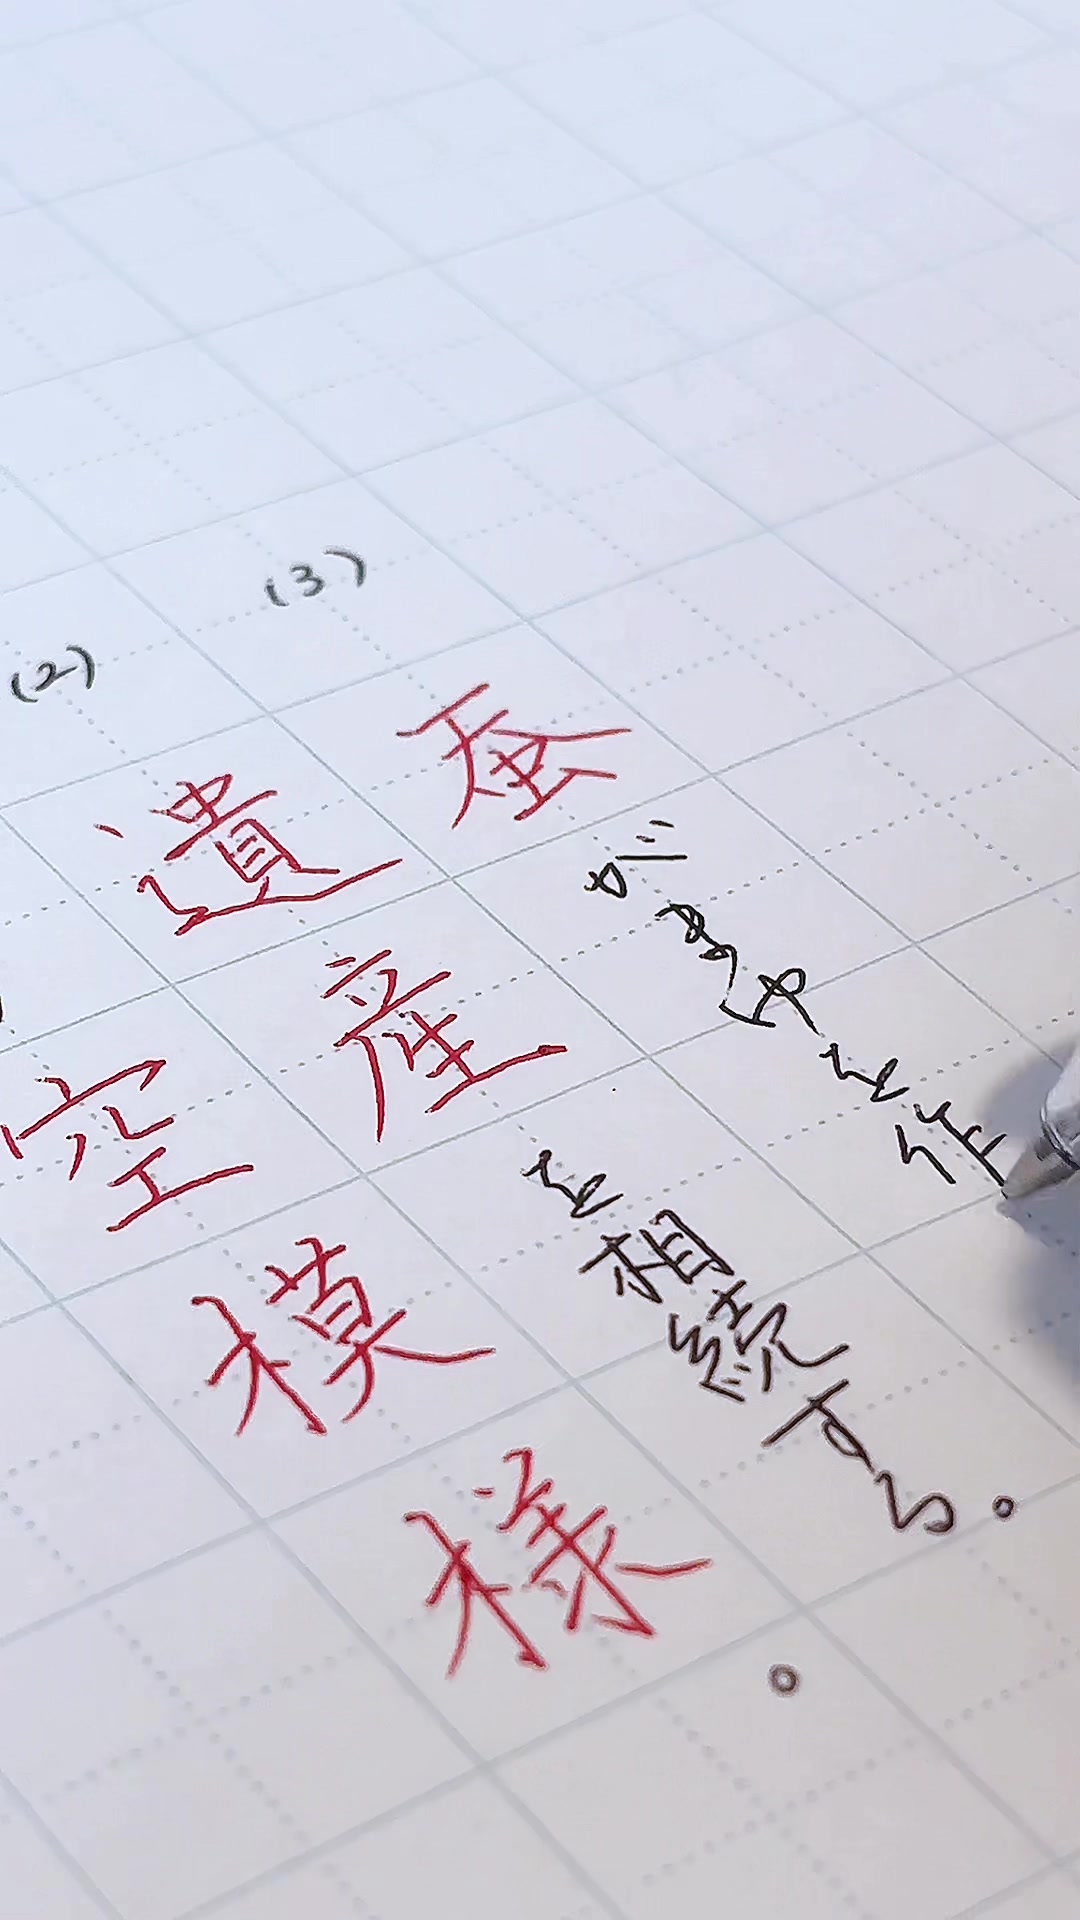 空模様。
(2) 遺産を相続する。
(3) 蚕がまゆを作